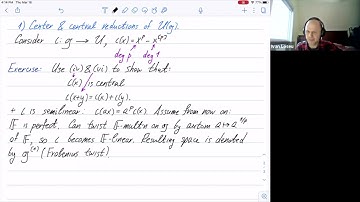 4:14 PM Thu Mar 18
1) Center & central reductions of U(g).
Consider ι: g → U, ι(x) = x^p − x^[p]
deg p deg 1
Exercise: Use (iv) & (vi) to show that:
ι(x) is central
ι(x+y) = ι(x) + ι(y).
+ ι is semilinear: ι(ax) = a^p ι(x). Assume from now on:
𝔽 is perfect. Can twist 𝔽-multn on g by autom a ↦ a^{1/p}
of 𝔽, so ι becomes 𝔽-linear. Resulting space is denoted
by g^(1) (Frobenius twist)
Ivan Losev